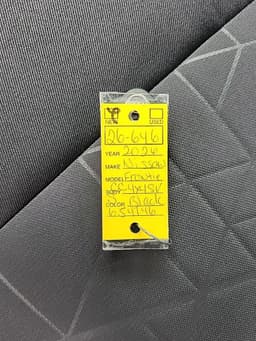 NEW USED
126-646
YEAR 2026
MAKE Nissan
MODEL Frontier
BODY CC 4x4 SV
COLOR Black
654146